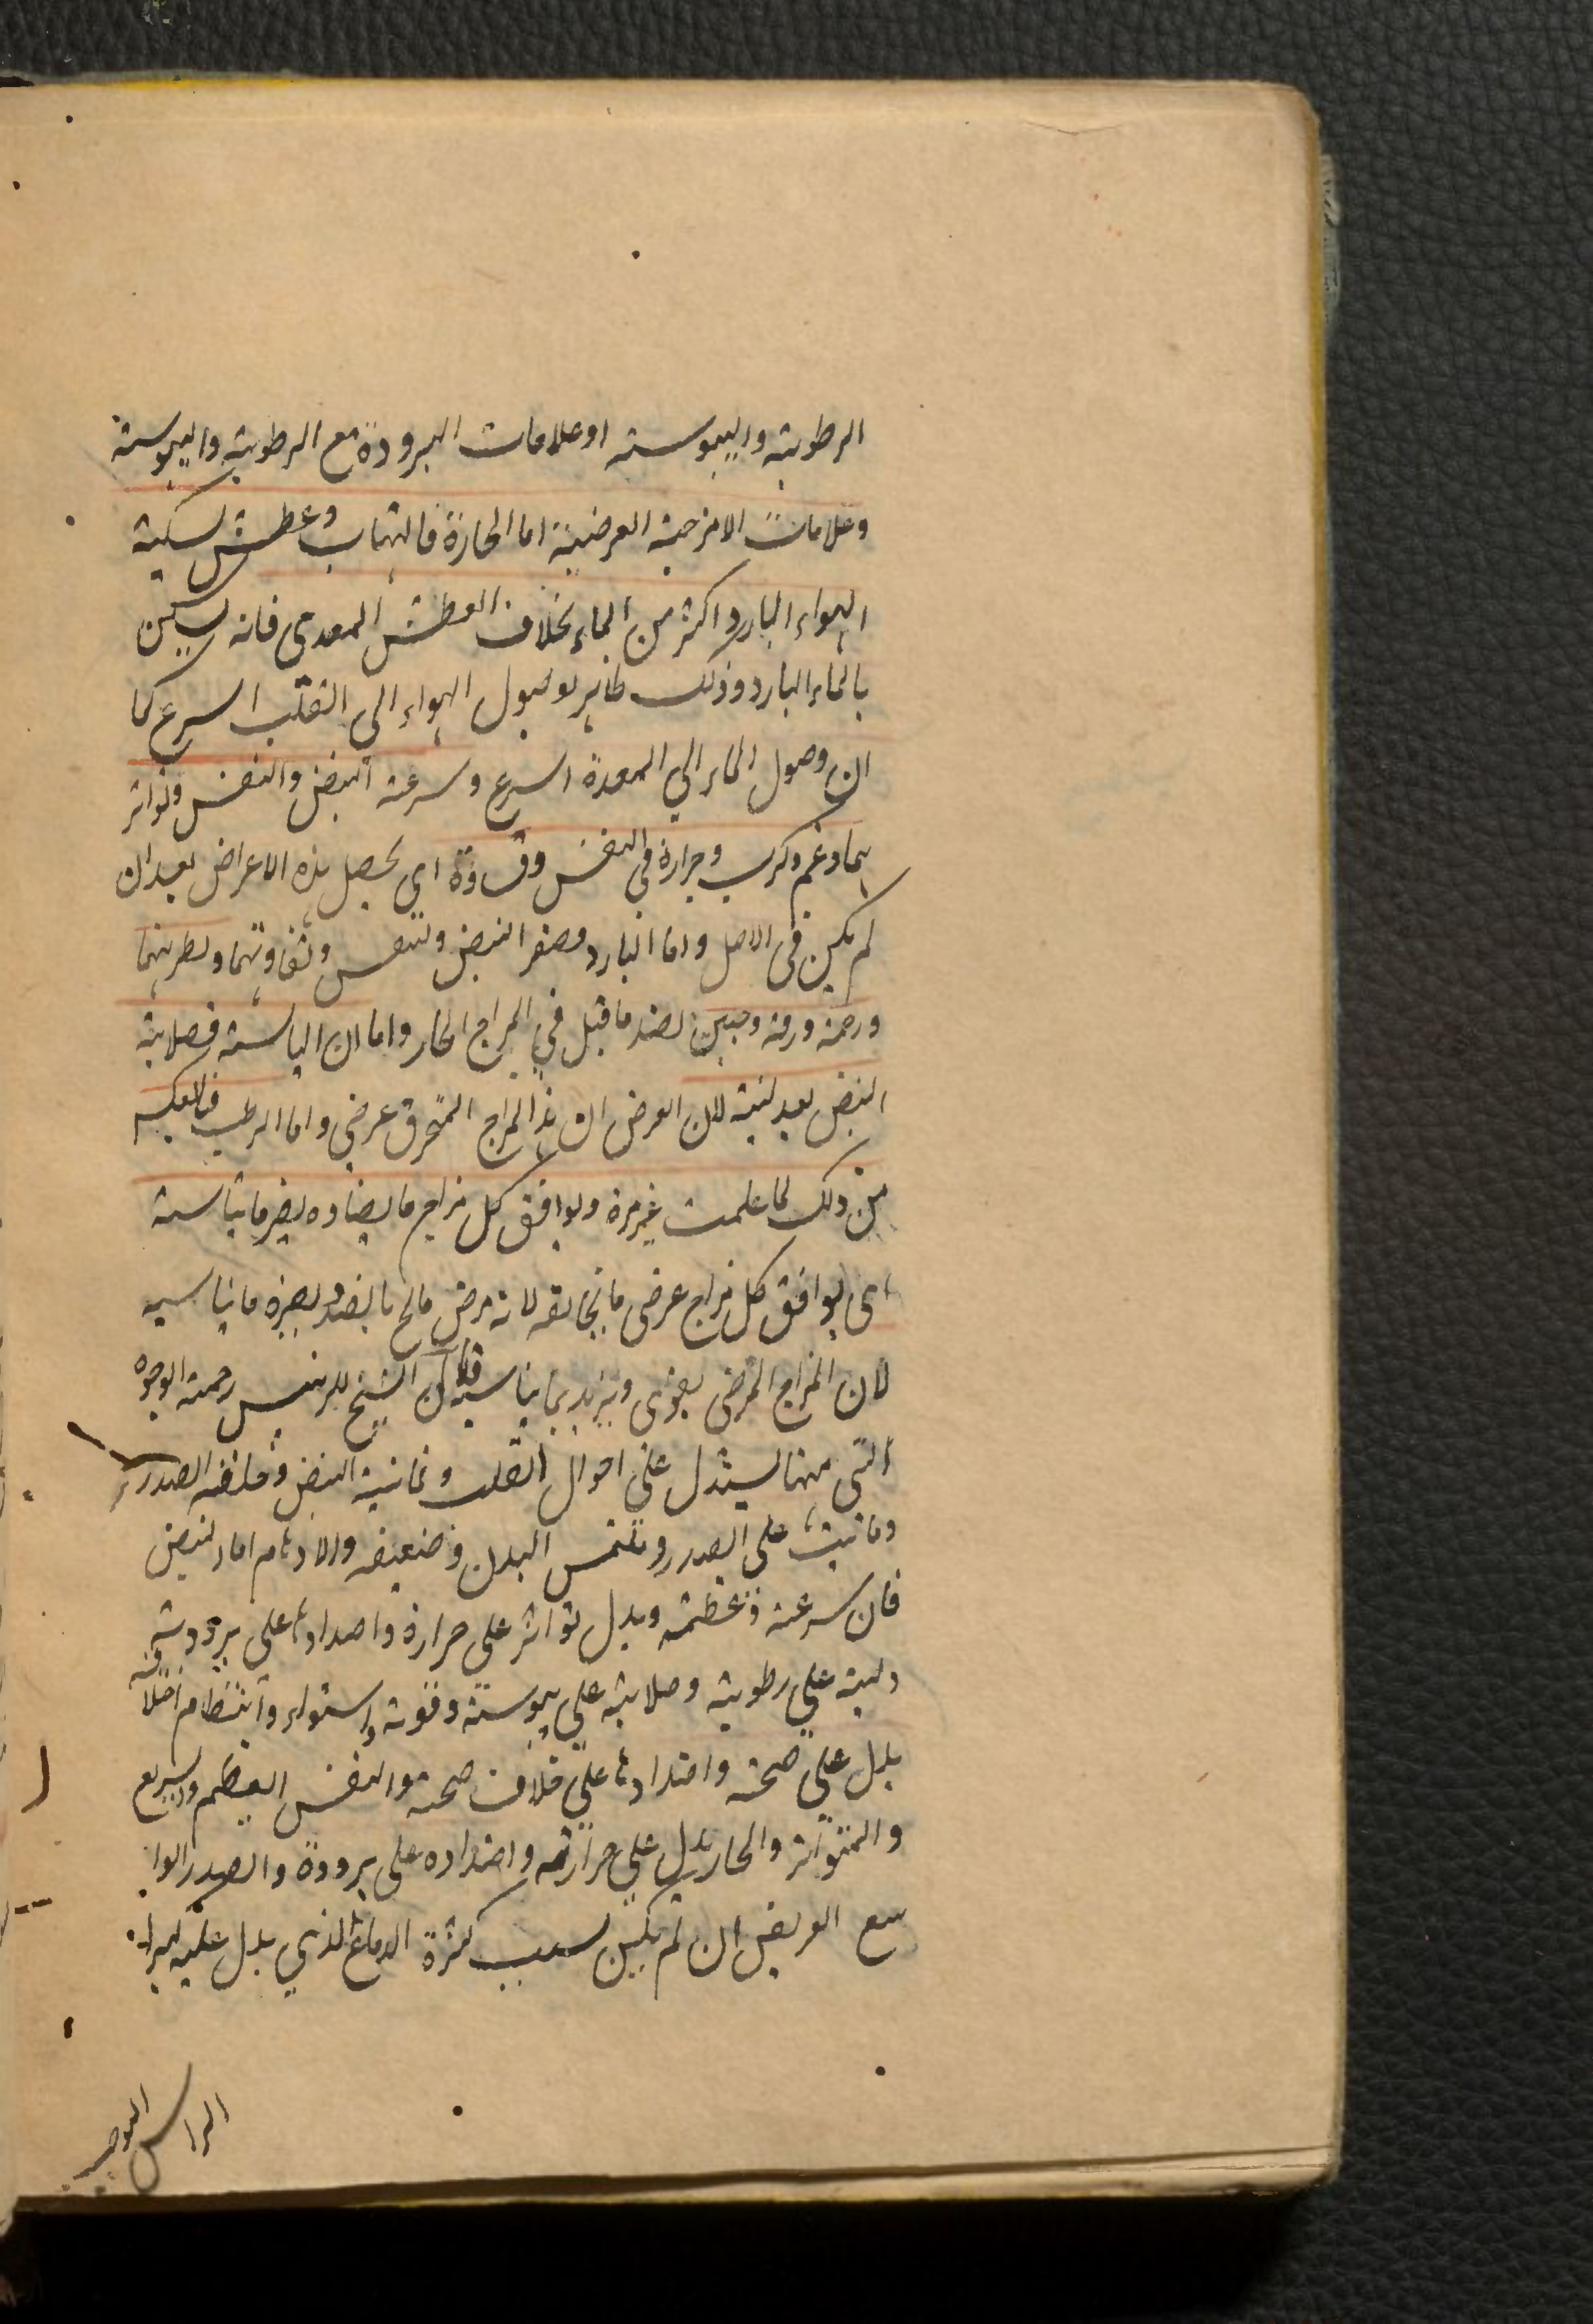 الرطوبة واليبوسة او علامات البرودة مع الرطوبة واليبوسة
وعلامات الامزجة العرضية اما الحارة فالتهاب وعطش يسكنه
الهواء البارد اكثر من الماء بخلاف العطش المعدي فانه يسكن
بالماء البارد وذلك ظاهر لوصول الهواء الى القلب اسرع كما
ان وصول الماء الي المعدة اسرع وسرعة النبض والنفس وتواتر
هما وغم وكرب وحرارة في النفس وقساوة اي يحصل هذه الاعراض بعد ان
لم يكن في الاصل واما البارد فصغر النبض والنفس وتفاوتهما وبطوئهما
ورحمة ورقة وجبن لضد ما قيل في المزاج الحار واما ان اليابسة فصلابة
النبض بعد لينه لان الغرض ان هذا المزاج المتحرق عرضي واما الرطب فبالعكس
من ذلك لما علمت غير مرة ويوافق كل مزاج ما يضاده يضر ما يناسبه
اي يوافق كل مزاج عرضي ما يخالفه لانه مرض يعالج بالضد ويضره ما يناسبه
لان المزاج المرضي يقوى ويزيد بما يناسبه قال الشيخ الرئيس رحمه الوجوه
التي منها يستدل على احوال القلب ثمانية النبض وخلقة الصدر
وما ينبت على الصدر وملمس البدن وضعيفه والاوهام اما النبض
فان سرعته وعظمه ويدل تواتر على حرارة واضدادها على برودته
ولينه على رطوبته وصلابته على يبوسته وقوته واستواء وانتظام اختلافه
يدل على صحته واضدادها على خلاف صحته والنفس العظيم والسريع
والمتواتر والحار يدل على حرارته واضداده على برودة والصدر الوا
سع العريض ان لم يكن لسبب كثرة الدماغ الذي يدل عليه كبر
الراس